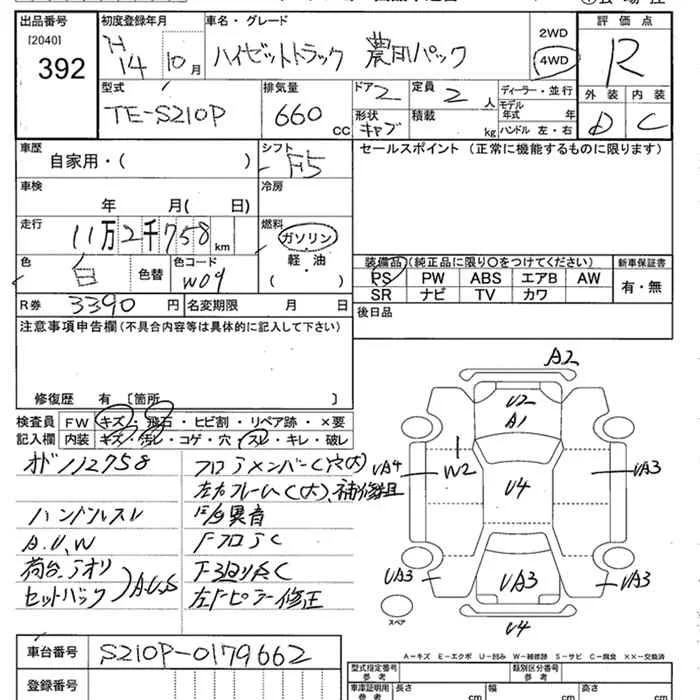 出品番号
[2040]
392
初度登録年月
H
14 10月
車名・グレード
ハイゼットトラック 農用パック
2WD
4WD
評価点
R
外装 内装
D C
型式
TE-S210P
排気量
660 cc
ドア 2
定員 2 人
形状 キャブ
積載 kg
ディーラー・並行
モデル年式 年
ハンドル 左・右
車歴
自家用・( )
シフト
F5
車検
年 月( 日)
冷房
走行
11万2千758 km
燃料
ガソリン
軽・油
( )
色
白
色替
色コード
W09
R券 3390 円
名変期限 月 日
セールスポイント (正常に機能するものに限ります)
装備品 (純正品に限り○をつけてください)
PS PW ABS エアB AW
SR ナビ TV カワ
新車保証書
有・無
後日品
注意事項申告欄(不具合内容等は具体的に記入して下さい)
修復歴 有 〔箇所 〕
検査員記入欄
FW キズ・飛石・ヒビ割・リペア跡・×要
内装 キズ・汚レ・コゲ・穴・スレ・キレ・破レ
オド112758
ハンドルスレ
A.U.W
荷台.アオリ
セットバック
A.U.S
フロアメンバーC穴(大)
左右フレームC(大)、補修粗
E/g異音
FフロアC
下廻り錆C
左Fピラー修正
A2
U2
A1
UA4
W2
U4
UA3
UA3
UA3
UA3
U4
スペア
A-キズ E-エクボ U-凹み W-補修跡 S-サビ C-腐食 ××-交換済
車台番号
S210P-0179662
登録番号
型式指定番号
参考
類別区分番号
参考
車庫証明用
参考
長さ cm
幅 cm
高さ cm